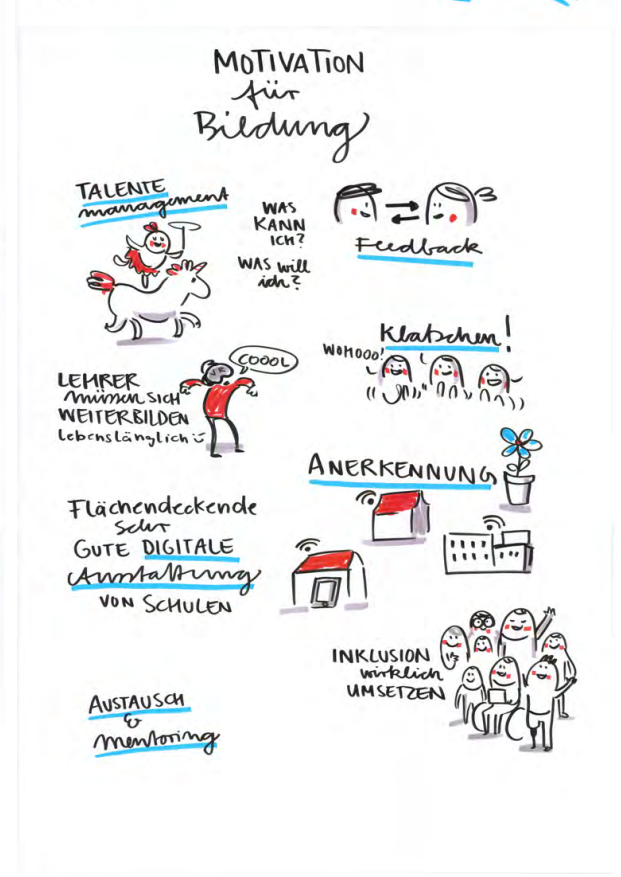 MOTIVATION
für
Bildung
TALENTE
management
WAS
KANN
ICH?
WAS will
ich?
Feedback
Klatschen!
WOHOOO!
COOOL
LEHRER
müssen SICH
WEITERBILDEN
Lebenslänglich
ANERKENNUNG
Flächendeckende
sehr
GUTE DIGITALE
Ausstattung
VON SCHULEN
INKLUSION
wirklich
UMSETZEN
AUSTAUSCH
&
mentoring